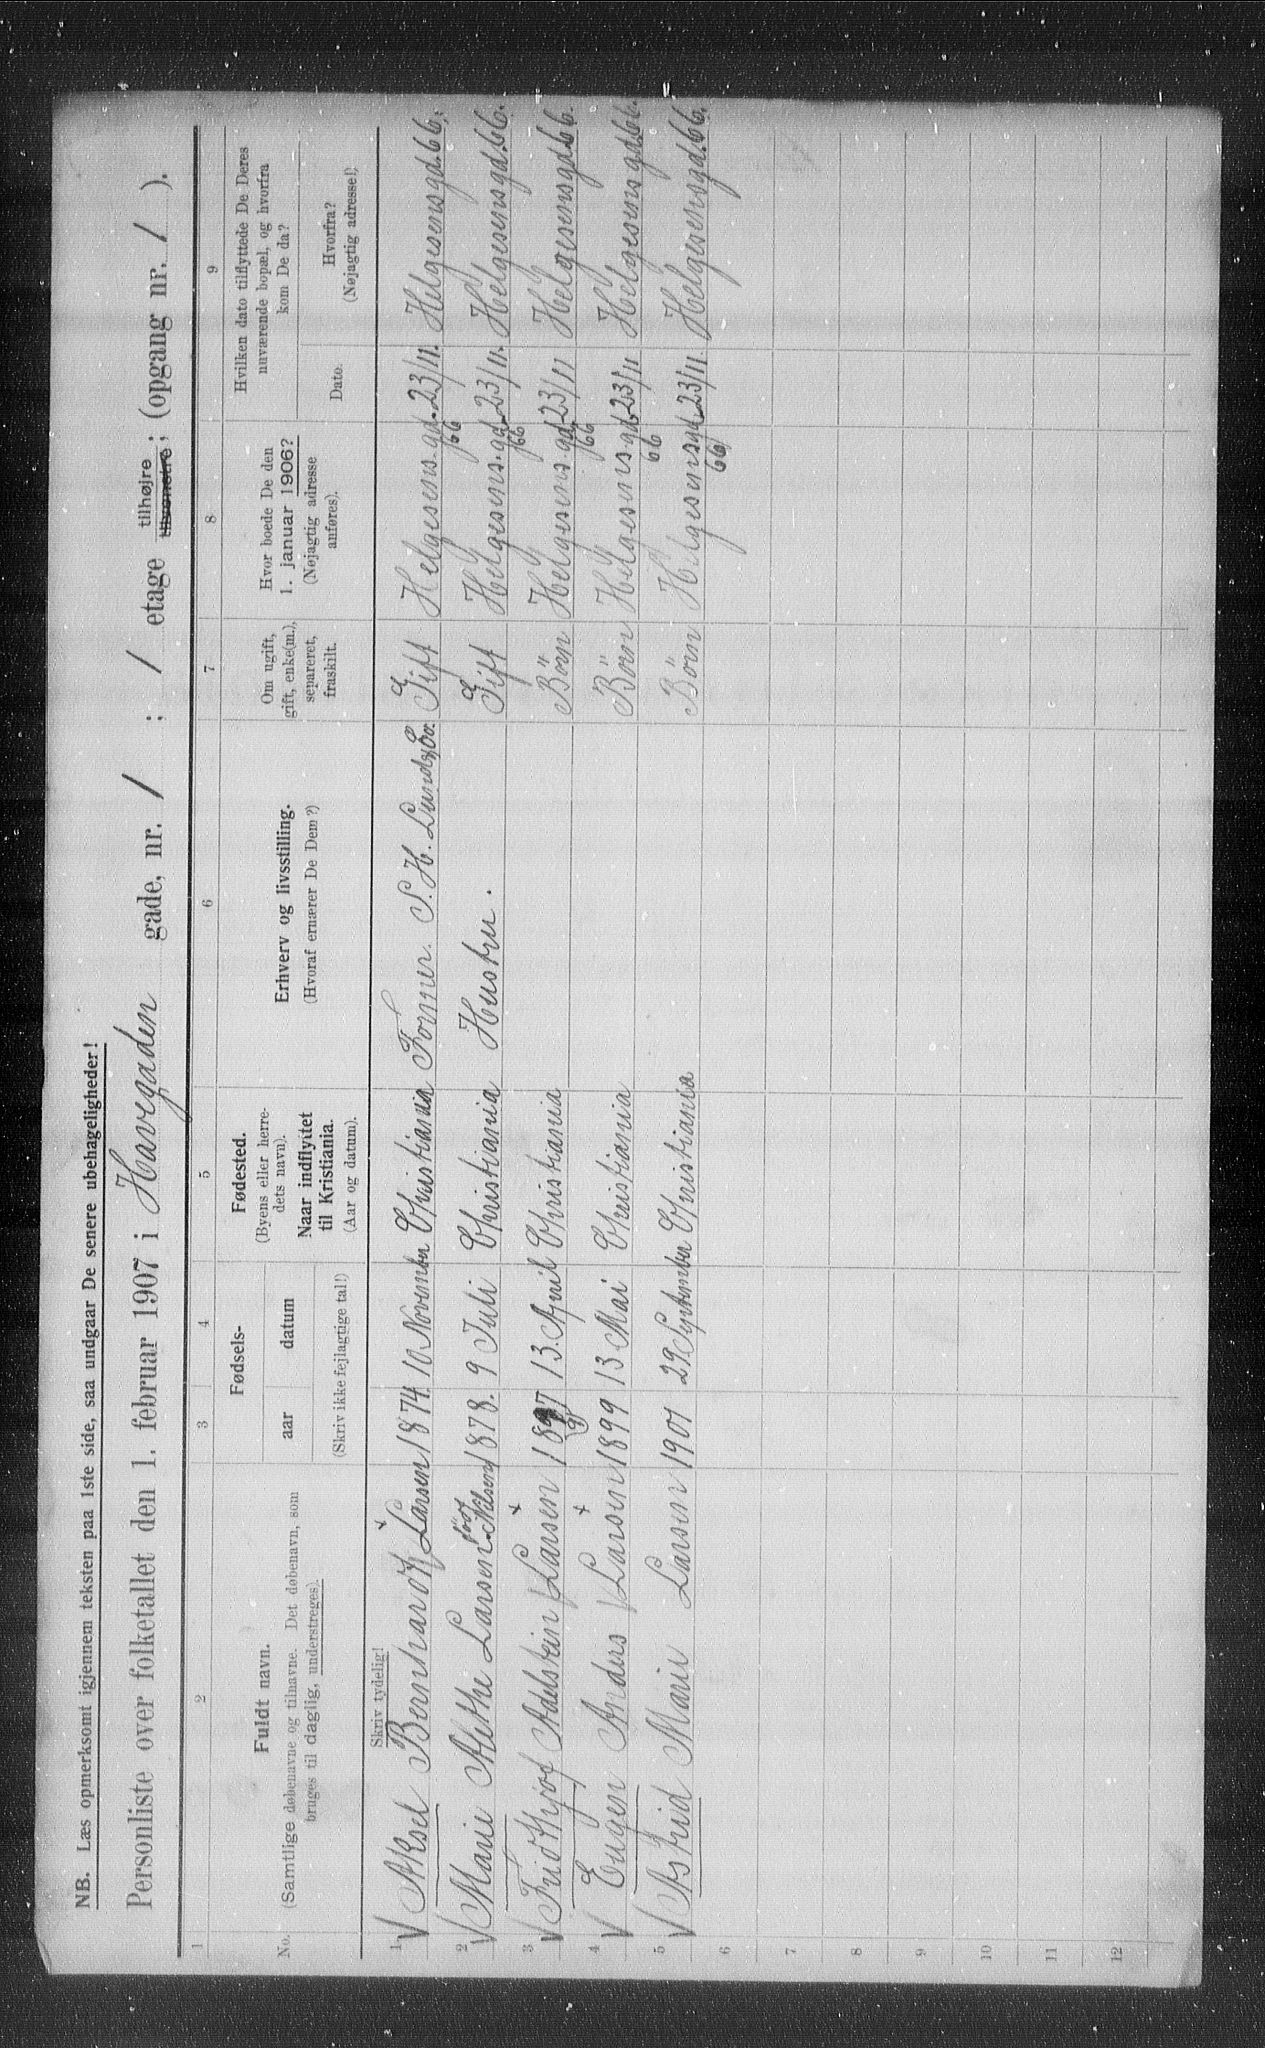 NB. Læs opmerksomt igjennem teksten paa 1ste side, saa undgaar De senere ubehageligheder!
Personliste over folketallet den 1. februar 1907 i Havegaden gade, nr. 1 ; 1 etage tilhøjre tilvenstre; (opgang nr. 1 ).
1 2 3 4 5 6 7 8 9
No. Fuldt navn. (Samtlige døbenavne og tilnavne. Det døbenavn, som bruges til daglig, understreges).
Fødsels- aar datum (Skriv ikke fejlagtige tal!)
Fødested. (Byens eller herredets navn). Naar indflyttet til Kristiania. (Aar og datum).
Erhverv og livsstilling. (Hvoraf ernærer De Dem?)
Om ugift, gift, enke(m.), separeret, fraskilt.
Hvor boede De den 1. januar 1906? (Nøjagtig adresse anføres).
Hvilken dato tilflyttede De Deres nuværende bopæl, og hvorfra kom De da?
Dato. Hvorfra? (Nøjagtig adresse!)
Skriv tydelig!
1 Aksel Bernhard Larsen 1874. 10 November Christiania Former. S. H. Lund & Co. Gift Helgesens.gd. 66 23/11. Helgesensgd. 66.
2 Marie Mathe Larsen født Nilsen 1878. 9 Juli Christiania Hustru. Gift Helgesens.gd. 66 23/11. Helgesensgd. 66.
3 Fridthjof Adelstein Larsen 1897 13. April Christiania Børn Helgesens.gd. 66 23/11 Helgesensgd. 66.
4 Eugen Anders Larsen 1899 13 Mai Christiania Børn Helgesens gd. 66 23/11 Helgesensgd. 66.
5 Astrid Marie Larsen 1901 29. September Christiania Børn Helgesensgd. 66 23/11. Helgesensgd. 66.
6
7
8
9
10
11
12